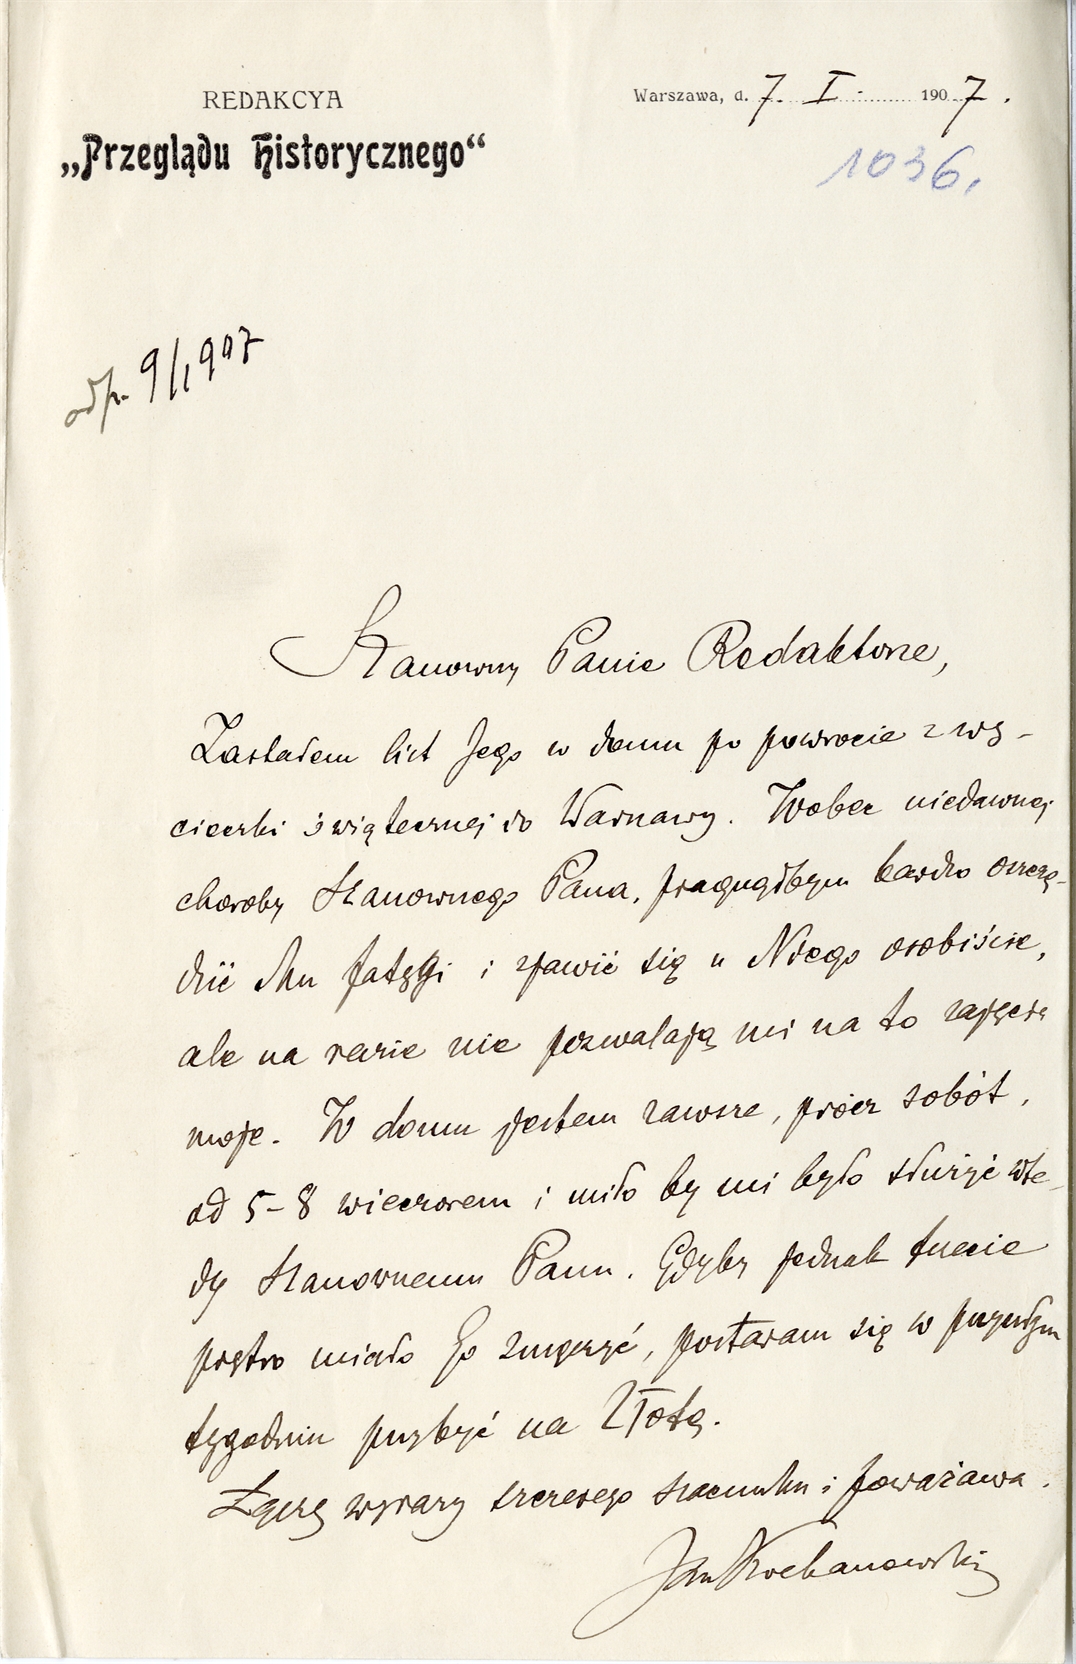 REDAKCYA
„Przeglądu Historycznego“
Warszawa, d. 7. I. 1907.
1036.
odp. 9/I 907
Szanowny Panie Redaktorze,
Zastałem list Jego w domu po powrocie z wy-
cieczki świątecznej do Warszawy. Wobec niedawnej
choroby Szanownego Pana, pragnąłbym bardzo oszczę-
dzić Mu fatygi i zjawić się u Niego osobiście,
ale na razie nie pozwalają mi na to zajęcia
moje. W domu jestem zawsze, prócz sobót,
od 5-8 wieczorem i miło by mi było służyć wte-
dy Szanownemu Panu. Gdyby jednak trzecie
piętro miało Go zmęczyć, postaram się w przyszłym
tygodniu przybyć na Złotą.
Łączę wyrazy szczerego szacunku i poważania.
Jan Kochanowski